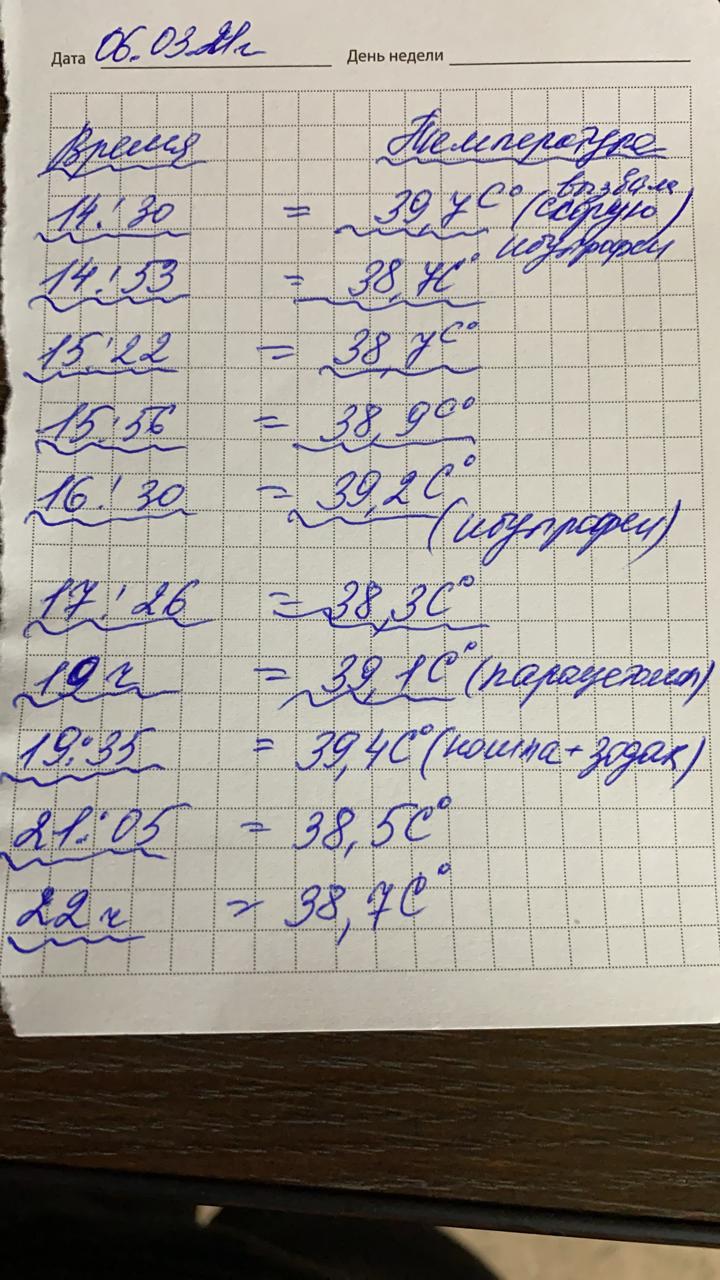 Дата 06.03.21г День недели
Время Температура
14:30 = 39,7С° (вызвала скорую) ибупрофен
14:53 = 38,7С°
15:22 = 38,7С°
15:56 = 38,9С°
16:30 = 39,2С°
(ибупрофен)
17:26 = 38,3С°
19ч = 39,1С° (парацетамол)
19:35 = 39,4С° (ношпа+зодак)
21:05 = 38,5С°
22ч = 38,7С°